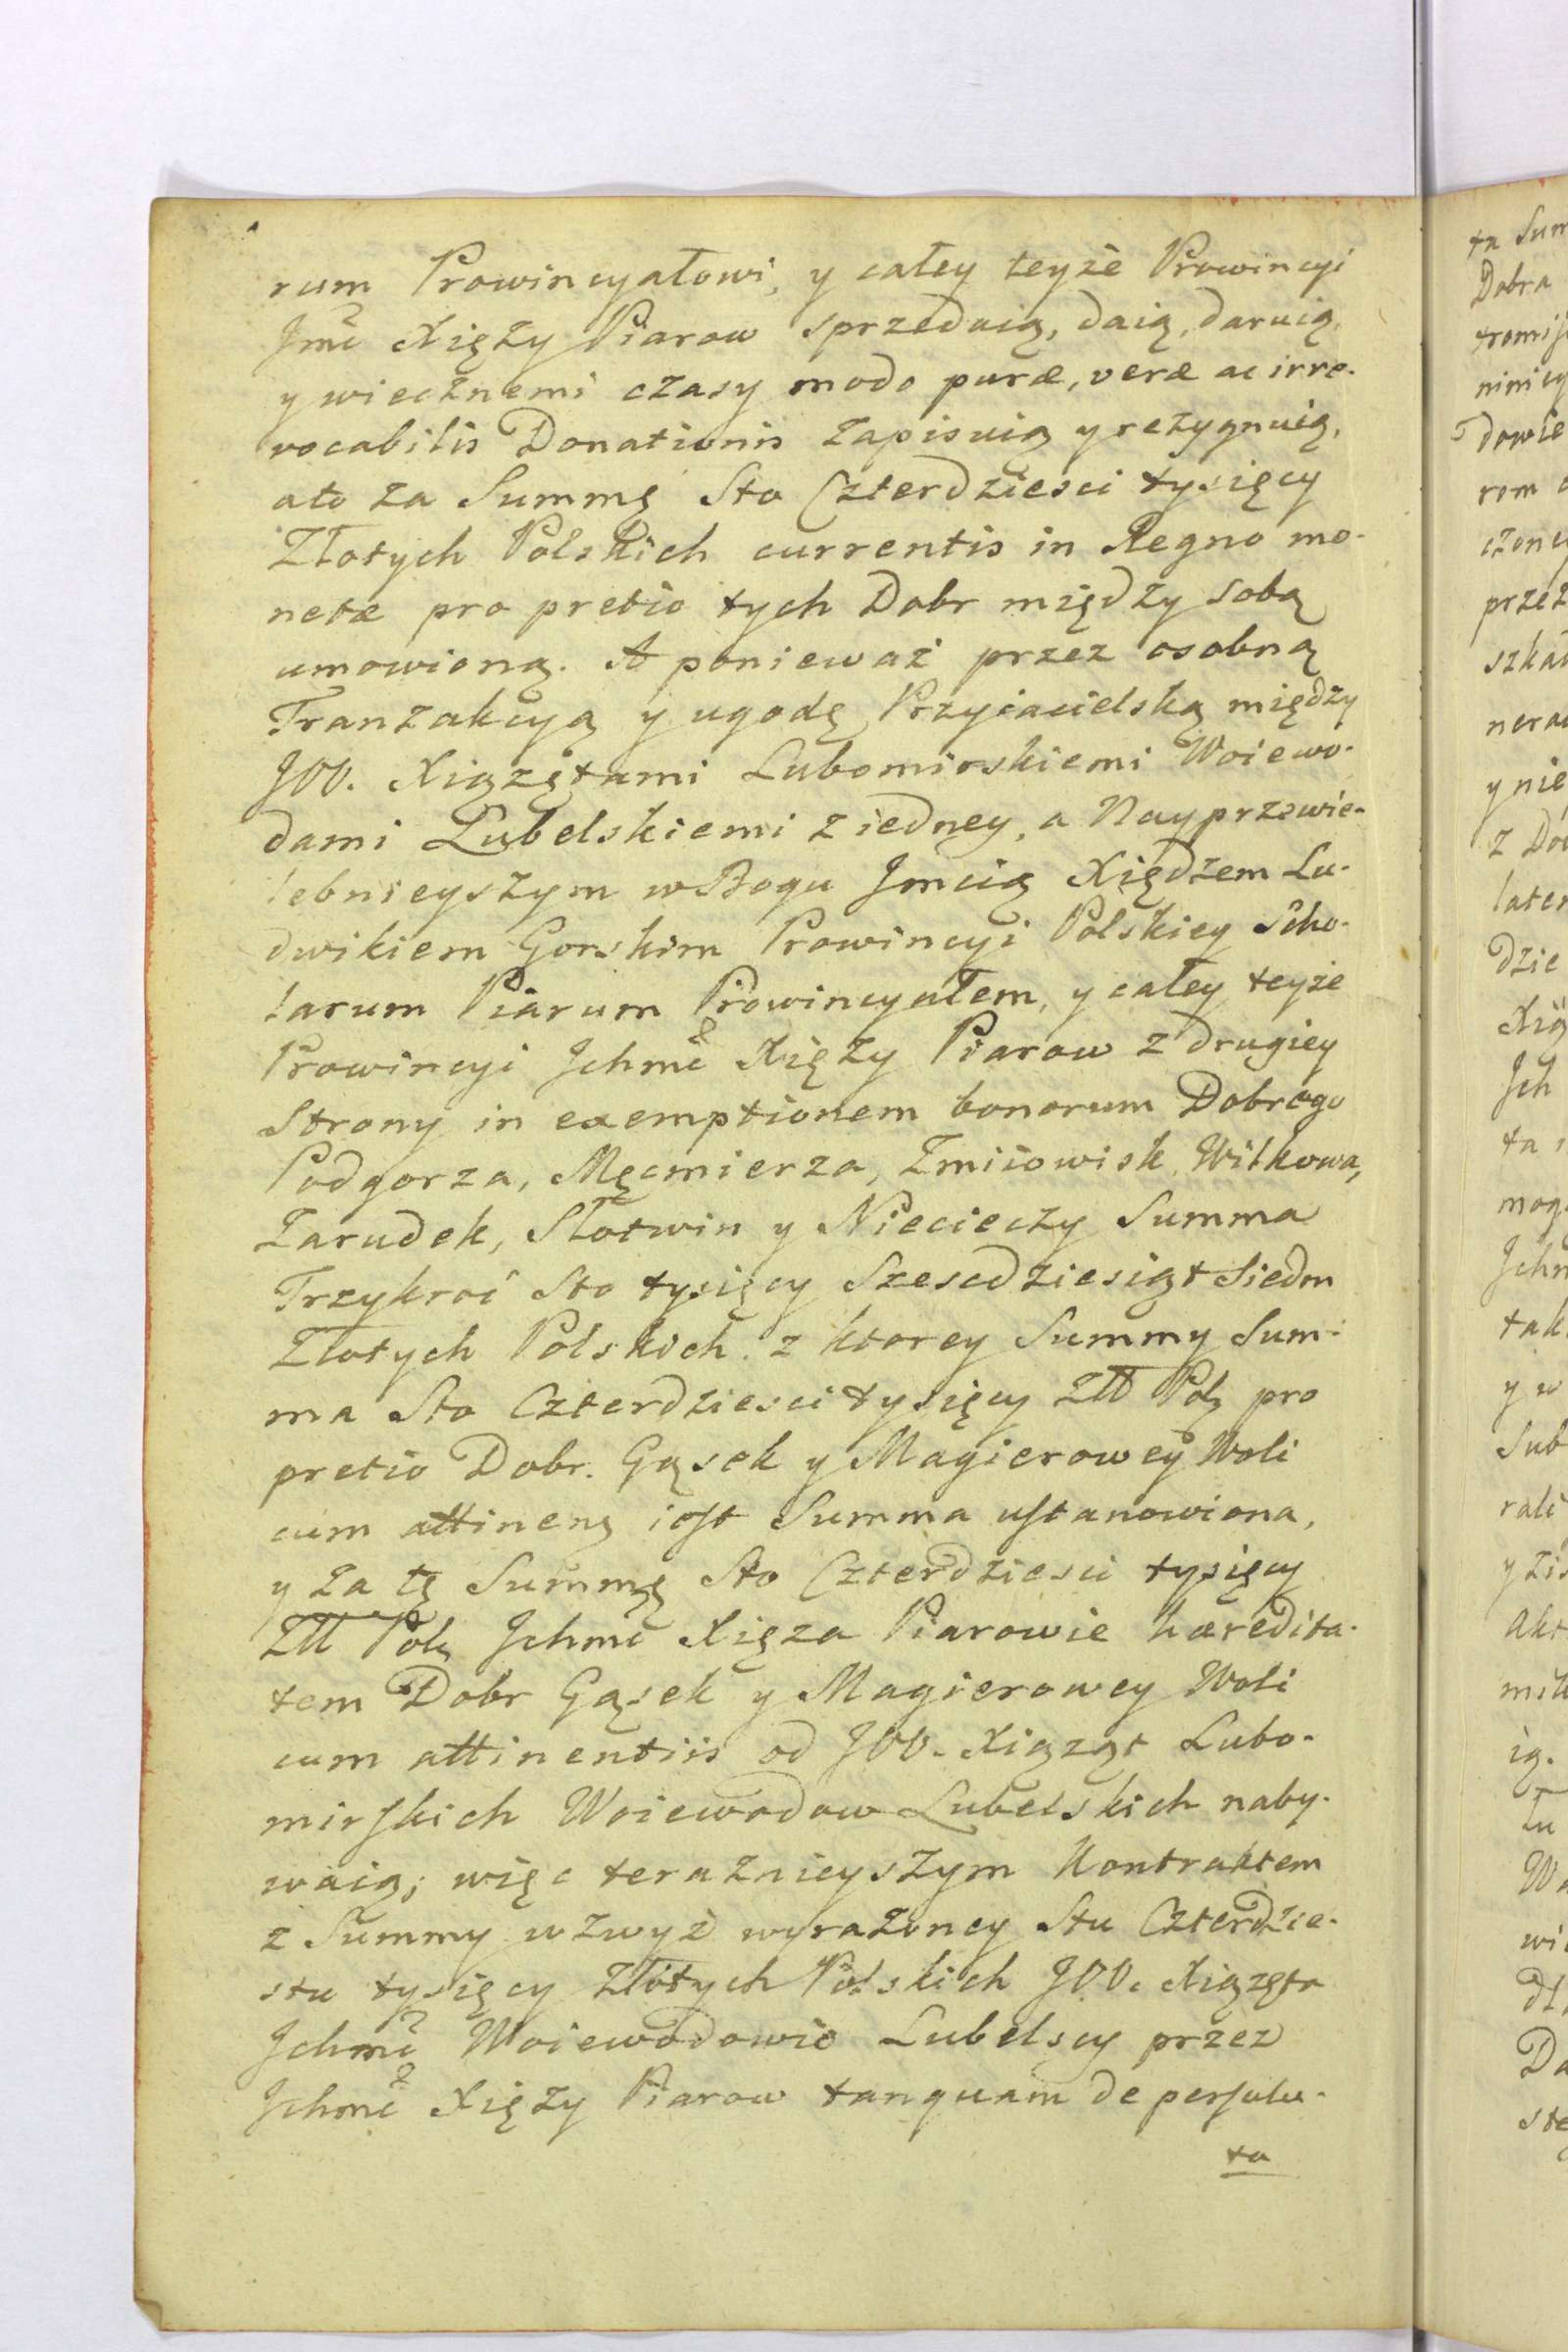 rum Prowincyałowi, y całey teyże Prowincyi
Jmć Xięży Piarow sprzedaią, daią, daruią,
y wiecznemi czasy modo puræ, veræ ac irre-
vocabilis Donationis zapisuią y rezygnuią,
ato za Summę Sto Czterdziesci tysięcy
Złotych Polskich currentis in Regno mo-
netæ pro pretio tych Dobr między sobą
umowioną. A ponieważ przez osobną
Tranzakcyą y ugodę Przyiacielską między
JOO. Xiążętami Lubomirskiemi Woiewo-
dami Lubelskiemi z iedney, a Nayprzewie-
lebnieyszym w Bogu Jmcią Xiędzem Lu-
dwikiem Gorskim Prowincyi Polskiey Scho-
larum Piarum Prowincyałem, y całey teyże
Prowincyi Jchmć Xięży Piarow z drugiey
Strony in exemptionem bonorum Dobrego
Podgorza, Męcmierza, Zmiiowisk, Witkowa,
Zarudek, Słotwin y Niecieczy Summa
Trzykroć Sto tysięcy Szescdziesiąt Siedm
Złotych Polskich z ktorey Summy Sum-
ma Sto Czterdziesci tysięcy Złł Pol pro
pretio Dobr. Gąsek y Magierowey Woli
cum attinen iest Summa ustanowiona,
y za tę Summę Sto Czterdziesci tysięcy
Złł Pol Jchmć Xięża Piarowie hæredita-
tem Dobr Gąsek y Magierowey Woli
cum attinentiis od JOO. Xiążąt Lubo-
mirskich Woiewodow Lubelskich naby-
waią; więc terażnieyszym Kontraktem
z Summy wzwyż wyrażoney Stu Czterdzie-
stu tysięcy Złotych Polskich JOO. Xiążęta
Jchmć Woiewodowie Lubelscy przez
Jchmć Xięży Piarow tanquam de persolu-
ta
ta Sum
Dobra
dowie
rem
przez
szkał
y nie
dzie
Jch
ta
tak
y w
Sub
ią.